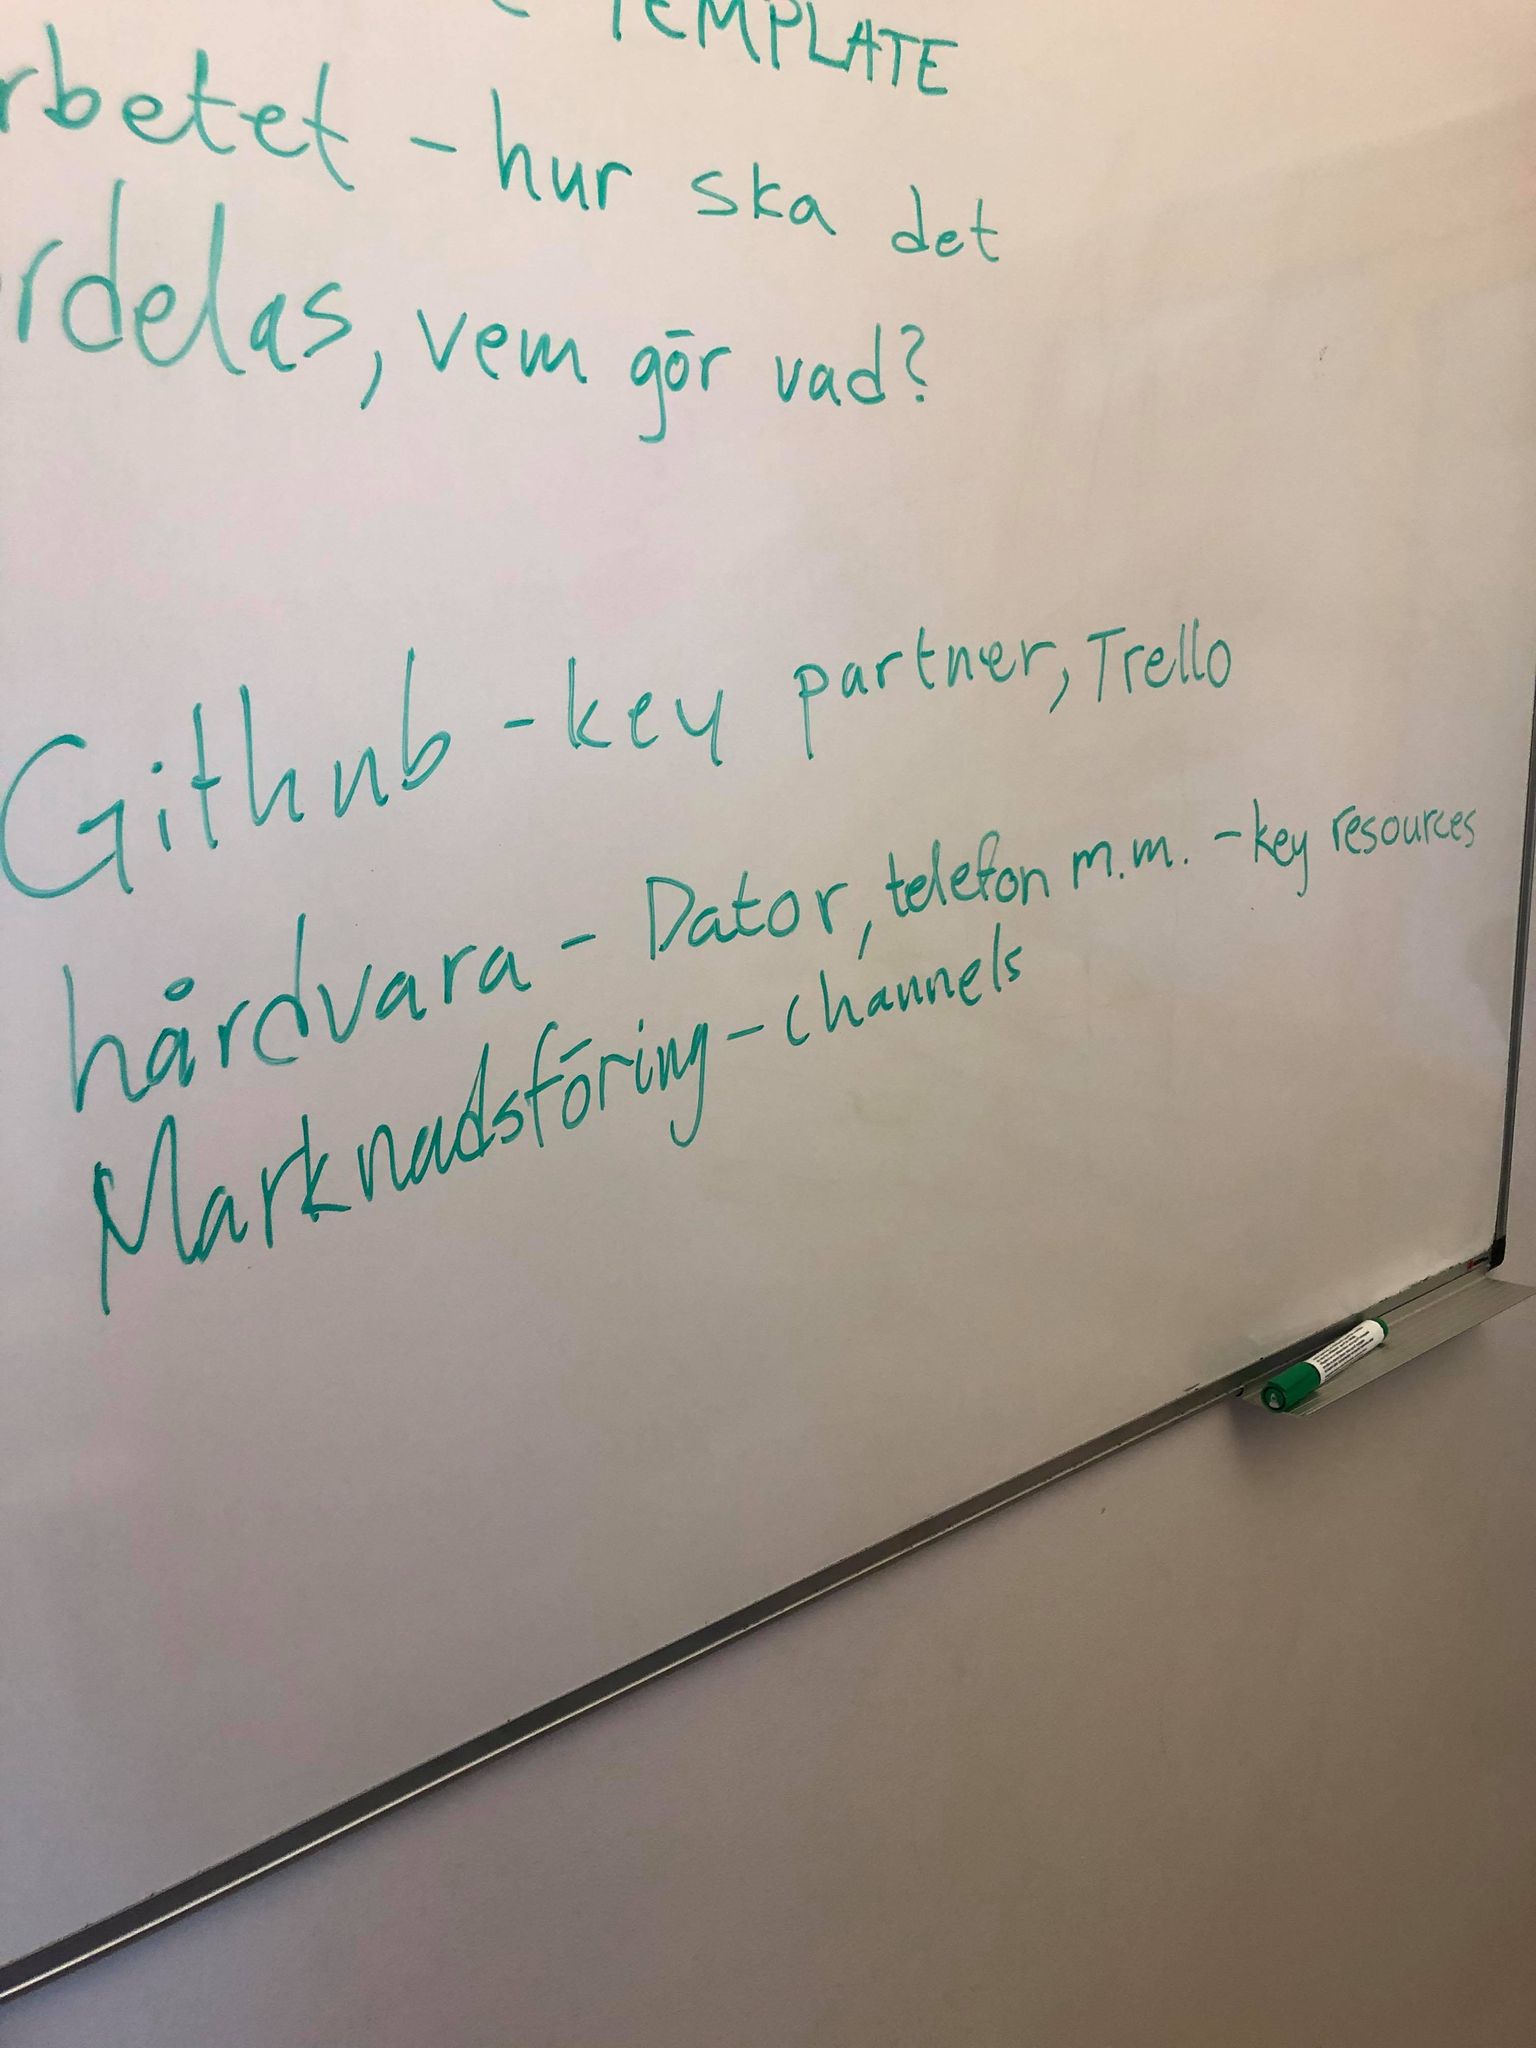 TEMPLATE
rbetet - hur ska det
rdelas, vem gör vad?
Github - key partner, Trello
hårdvara - Dator, telefon m.m. - key resources
Marknadsföring - channels